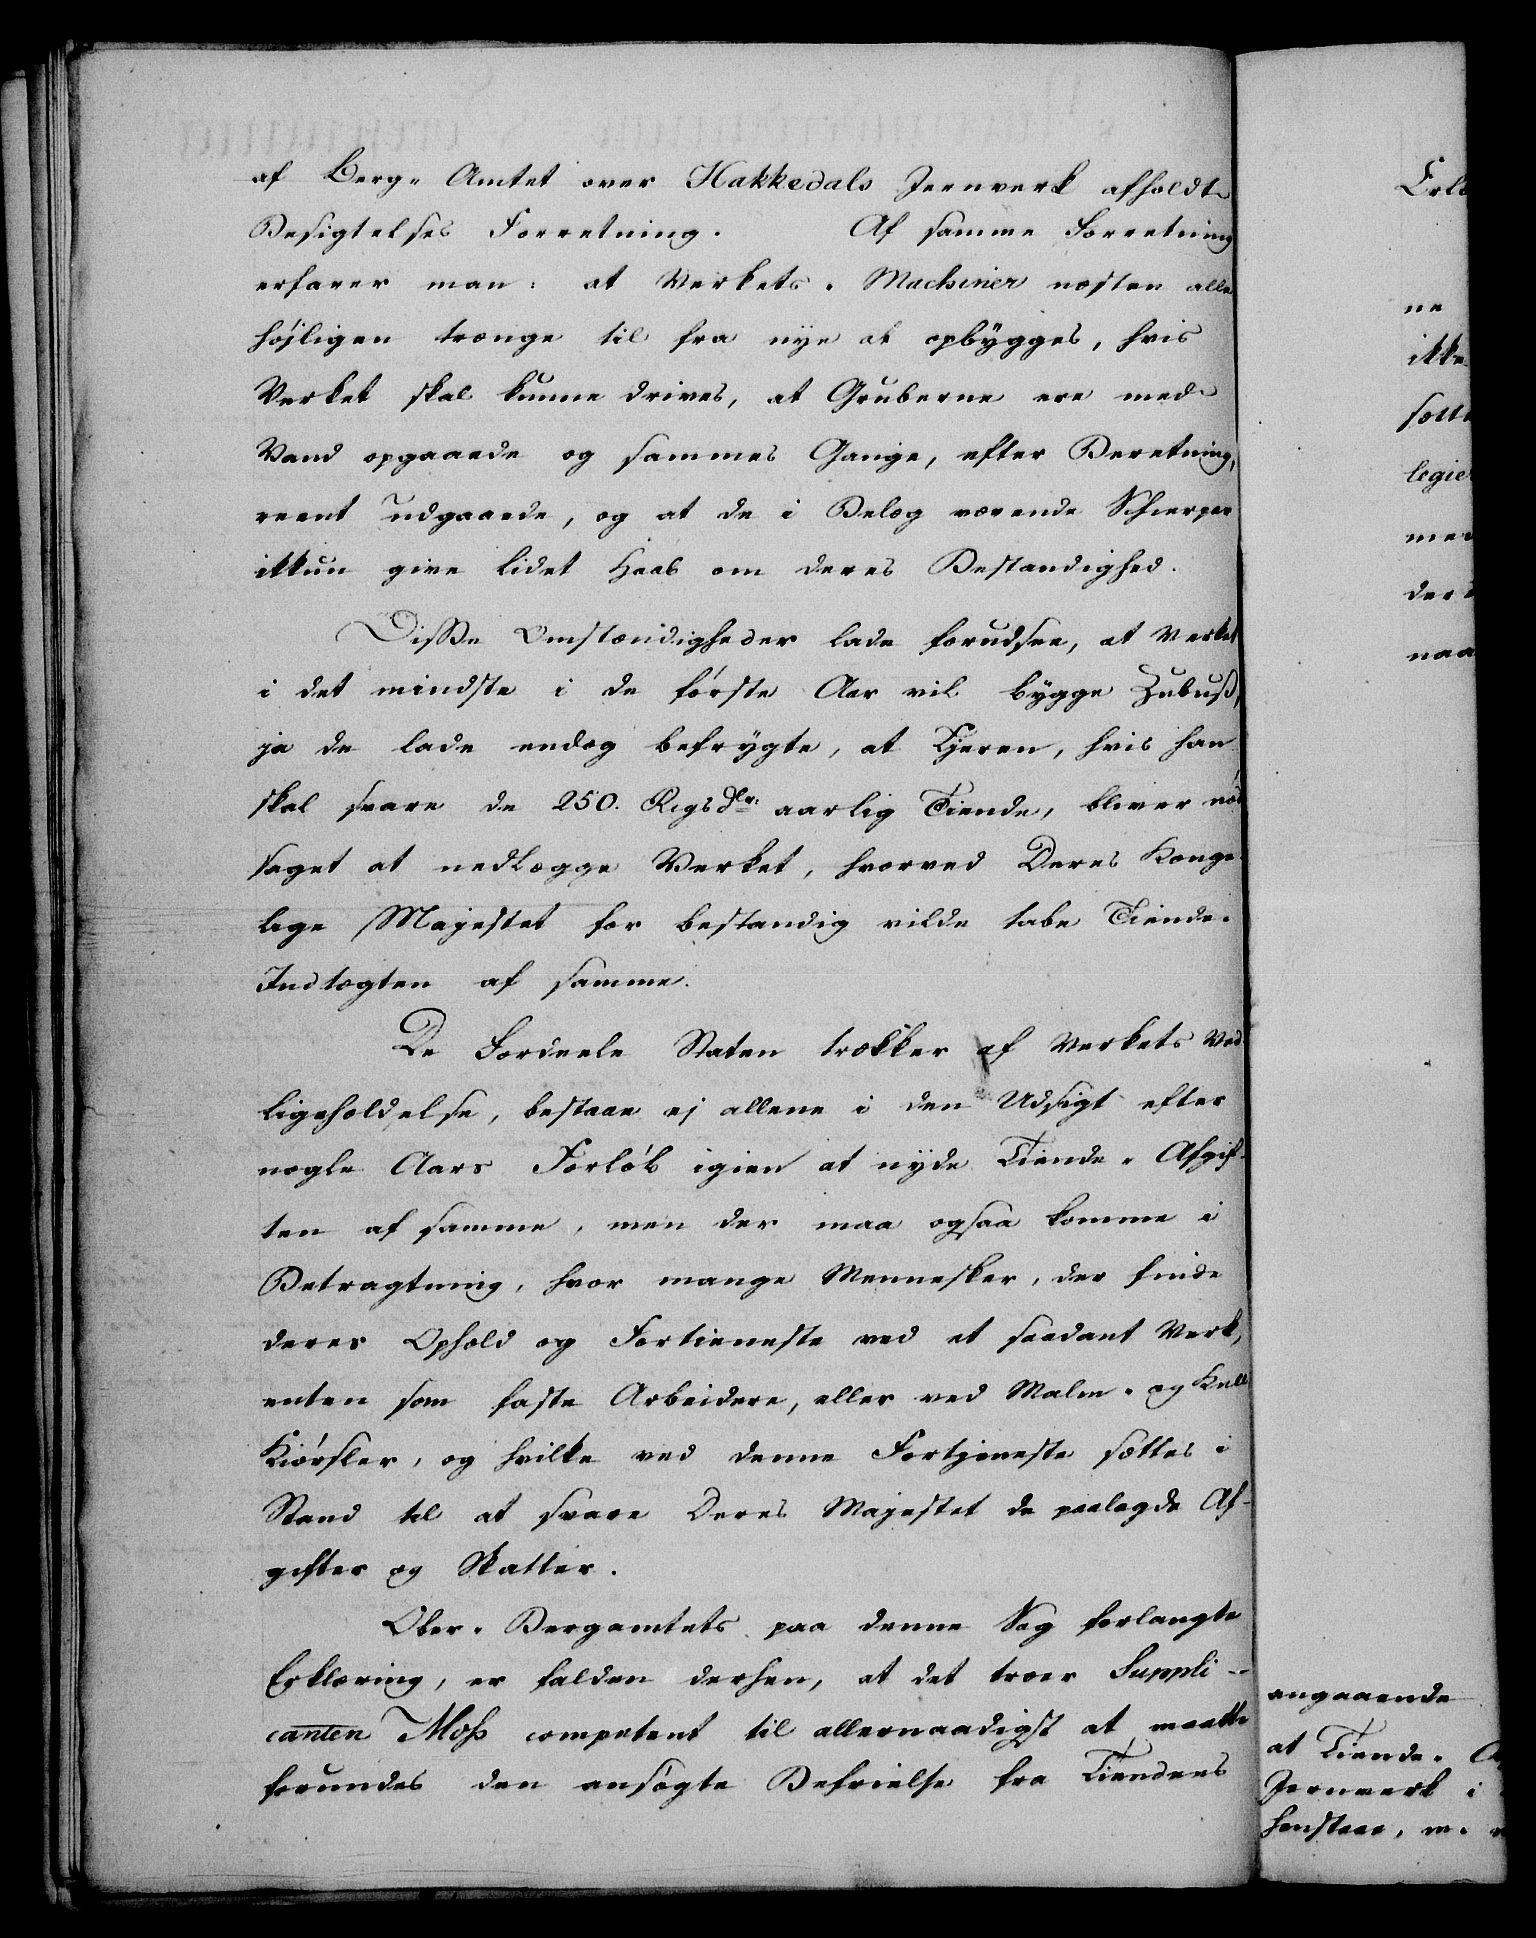 af Berg-Amtet over Hakkedals Jernverk afholdte
Besigtelses Forretning. Af samme Forretning
erfarer man: at Verkets-Machiner næsten alle
højligen trænge til fra nye at opbygges, hvis
Verket skal kunne drives, at Gruberne ere med
Vand opgaaede og sammes Gange, efter Beretning,
reent udgaaede, og at de i Belæg værende Schierper
ikkun give lidet Haab om deres Bestandighed.
Disse Omstændigheder lade forudsee, at Verket
i det mindste i de første Aar vil bygge Zubuß,
ja de lade endog befrygte, at Ejeren, hvis han
skal svare de 250. Rigsdlr. aarlig Tiende, bliver nød
saget at nedlægge Verket, hvorved Deres Konge-
lige Majestet for bestandig vilde tabe Tiende-
Indtægten af samme.
De Fordeele Staten trækker af Verkets Ved
ligeholdelse, bestaae ej allene i den Udsigt efter
nogle Aars Forløb igien at nyde Tiende-Afgif-
ten af samme, men der maa ogsaa komme i
Betragtning, hvor mange Mennesker, der finde
deres Ophold og Fortieneste ved et saadant Verk,
enten som faste Arbeidere, eller ved Malm- og Kull
Kiørsler, og hvilke ved denne Fortjeneste sættes i
Stand til at svare Deres Majestet de paalagde Af-
gifter og Skatter.
Ober-Bergamtets paa denne Sag forlangte
Erklæring, er falden derhen, at det troer Suppli-
canten Moss competent til allernaadigst at maatte
forundes den ansøgte Befrielse fra Tiendens
ne
ikke
med
naa
angaaende
at Tiende-
Jernverk i
henstaae,